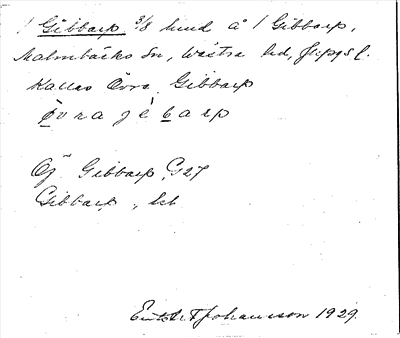 1 Gibbarp 3/8 hmd å 1 Gibbarp,
Malmbäcks Sn, Västra hd, Jkpgs l.
Kallas Övra Gibbarp
övra jèbarp
Gibbarp G27
Gibbarp,
Johansson 1929.